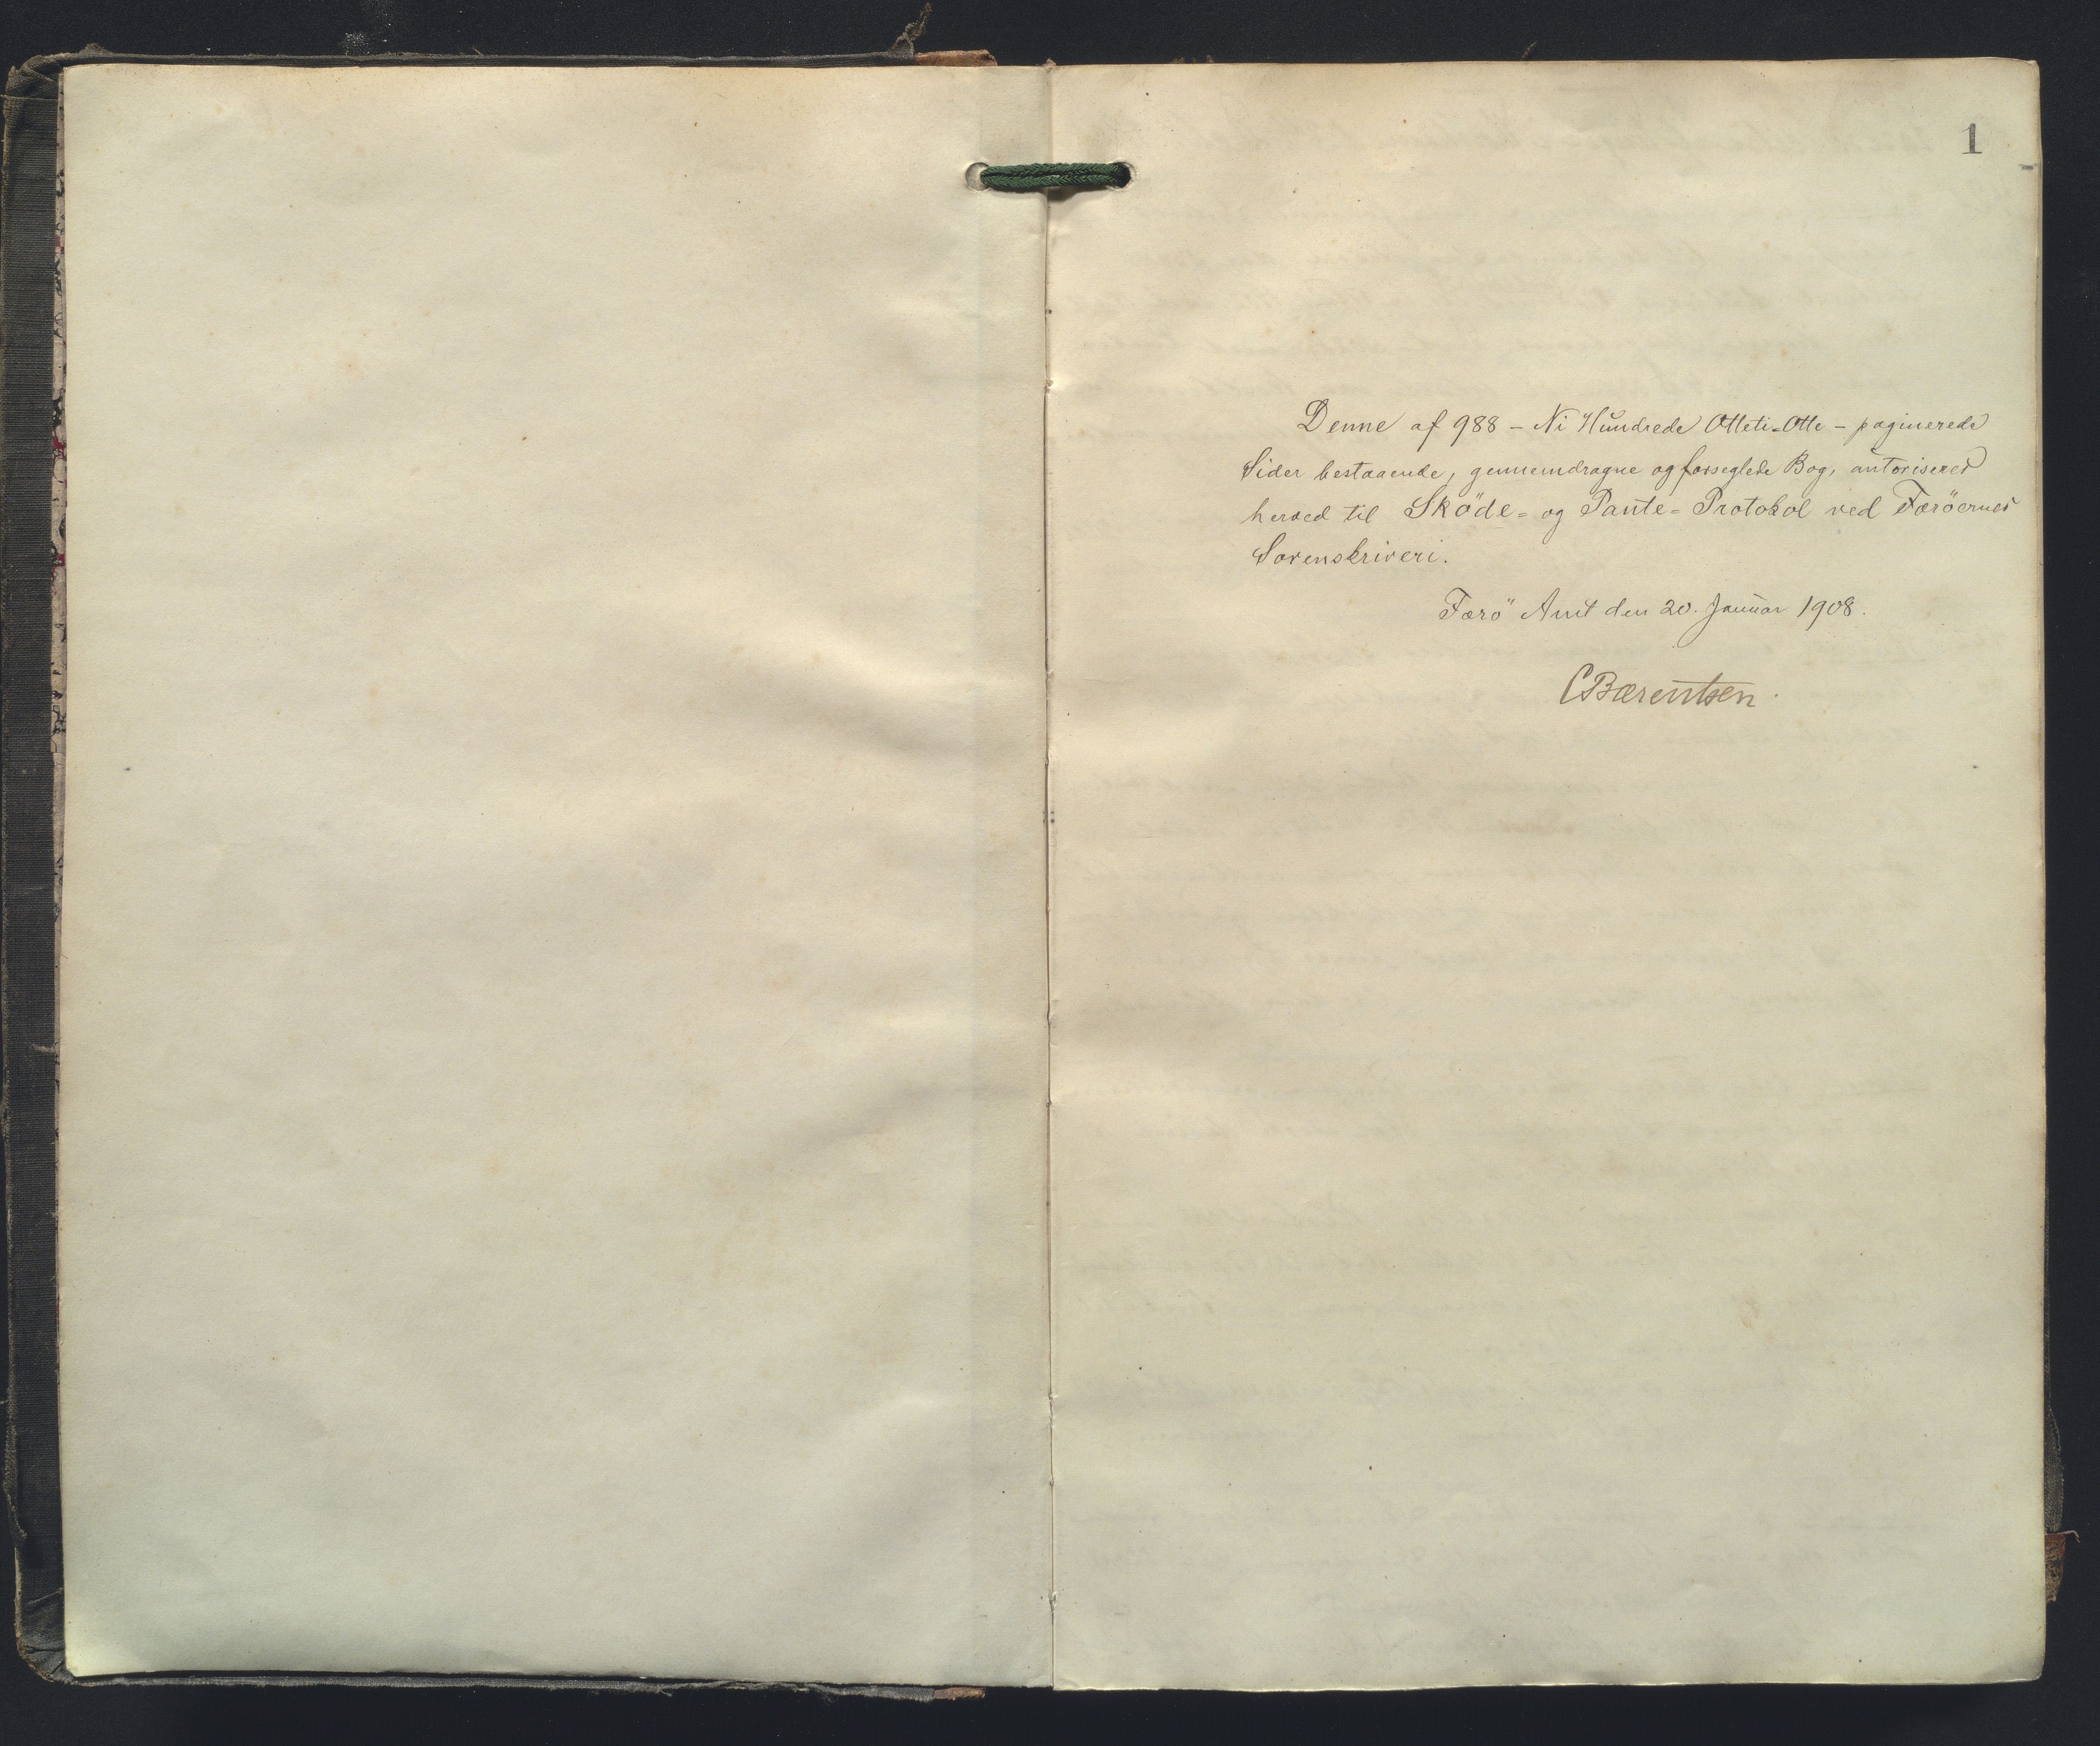 1
Denne af 988 – Ni Hundrede Otteti-Otte – paginerede
Sider bestaaende, gennemdragne og forseglede Bog, autoriseres
herved til Sköde= og Pante= Protokol ved Færöernes
Sorenskriveri.
Færö Amt den 20. Januar 1908.
CBærentsen.